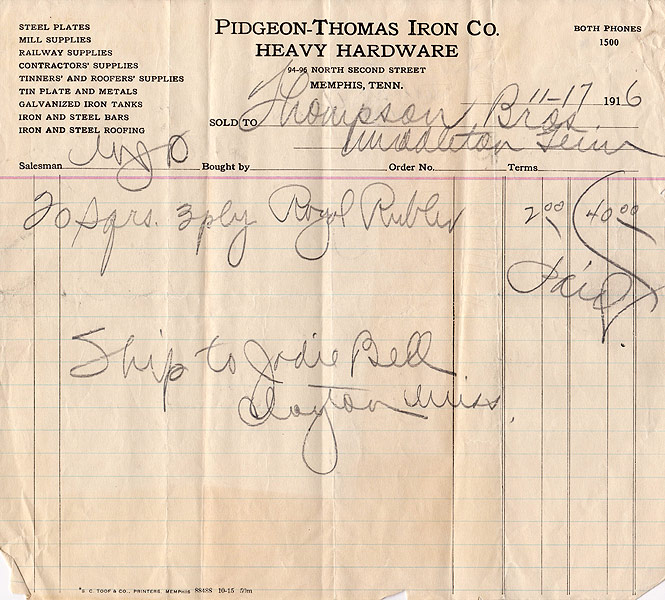 STEEL PLATES
MILL SUPPLIES
RAILWAY SUPPLIES
CONTRACTORS' SUPPLIES
TINNERS' AND ROOFERS' SUPPLIES
TIN PLATE AND METALS
GALVANIZED IRON TANKS
IRON AND STEEL BARS
IRON AND STEEL ROOFING
PIDGEON-THOMAS IRON CO.
HEAVY HARDWARE
94-96 NORTH SECOND STREET
MEMPHIS, TENN.
BOTH PHONES
1500
11-17 1916
SOLD TO Thompson Bros.
Middleton Tenn
Salesman Bought by Order No. Terms
20 Sqrs. 3 ply Royal Rubber 2.00 40.00
Paid
Ship to Jodie Bell
Clayton Miss.
S. C. TOOF & CO., PRINTERS, MEMPHIS 8848S 10-15 50m